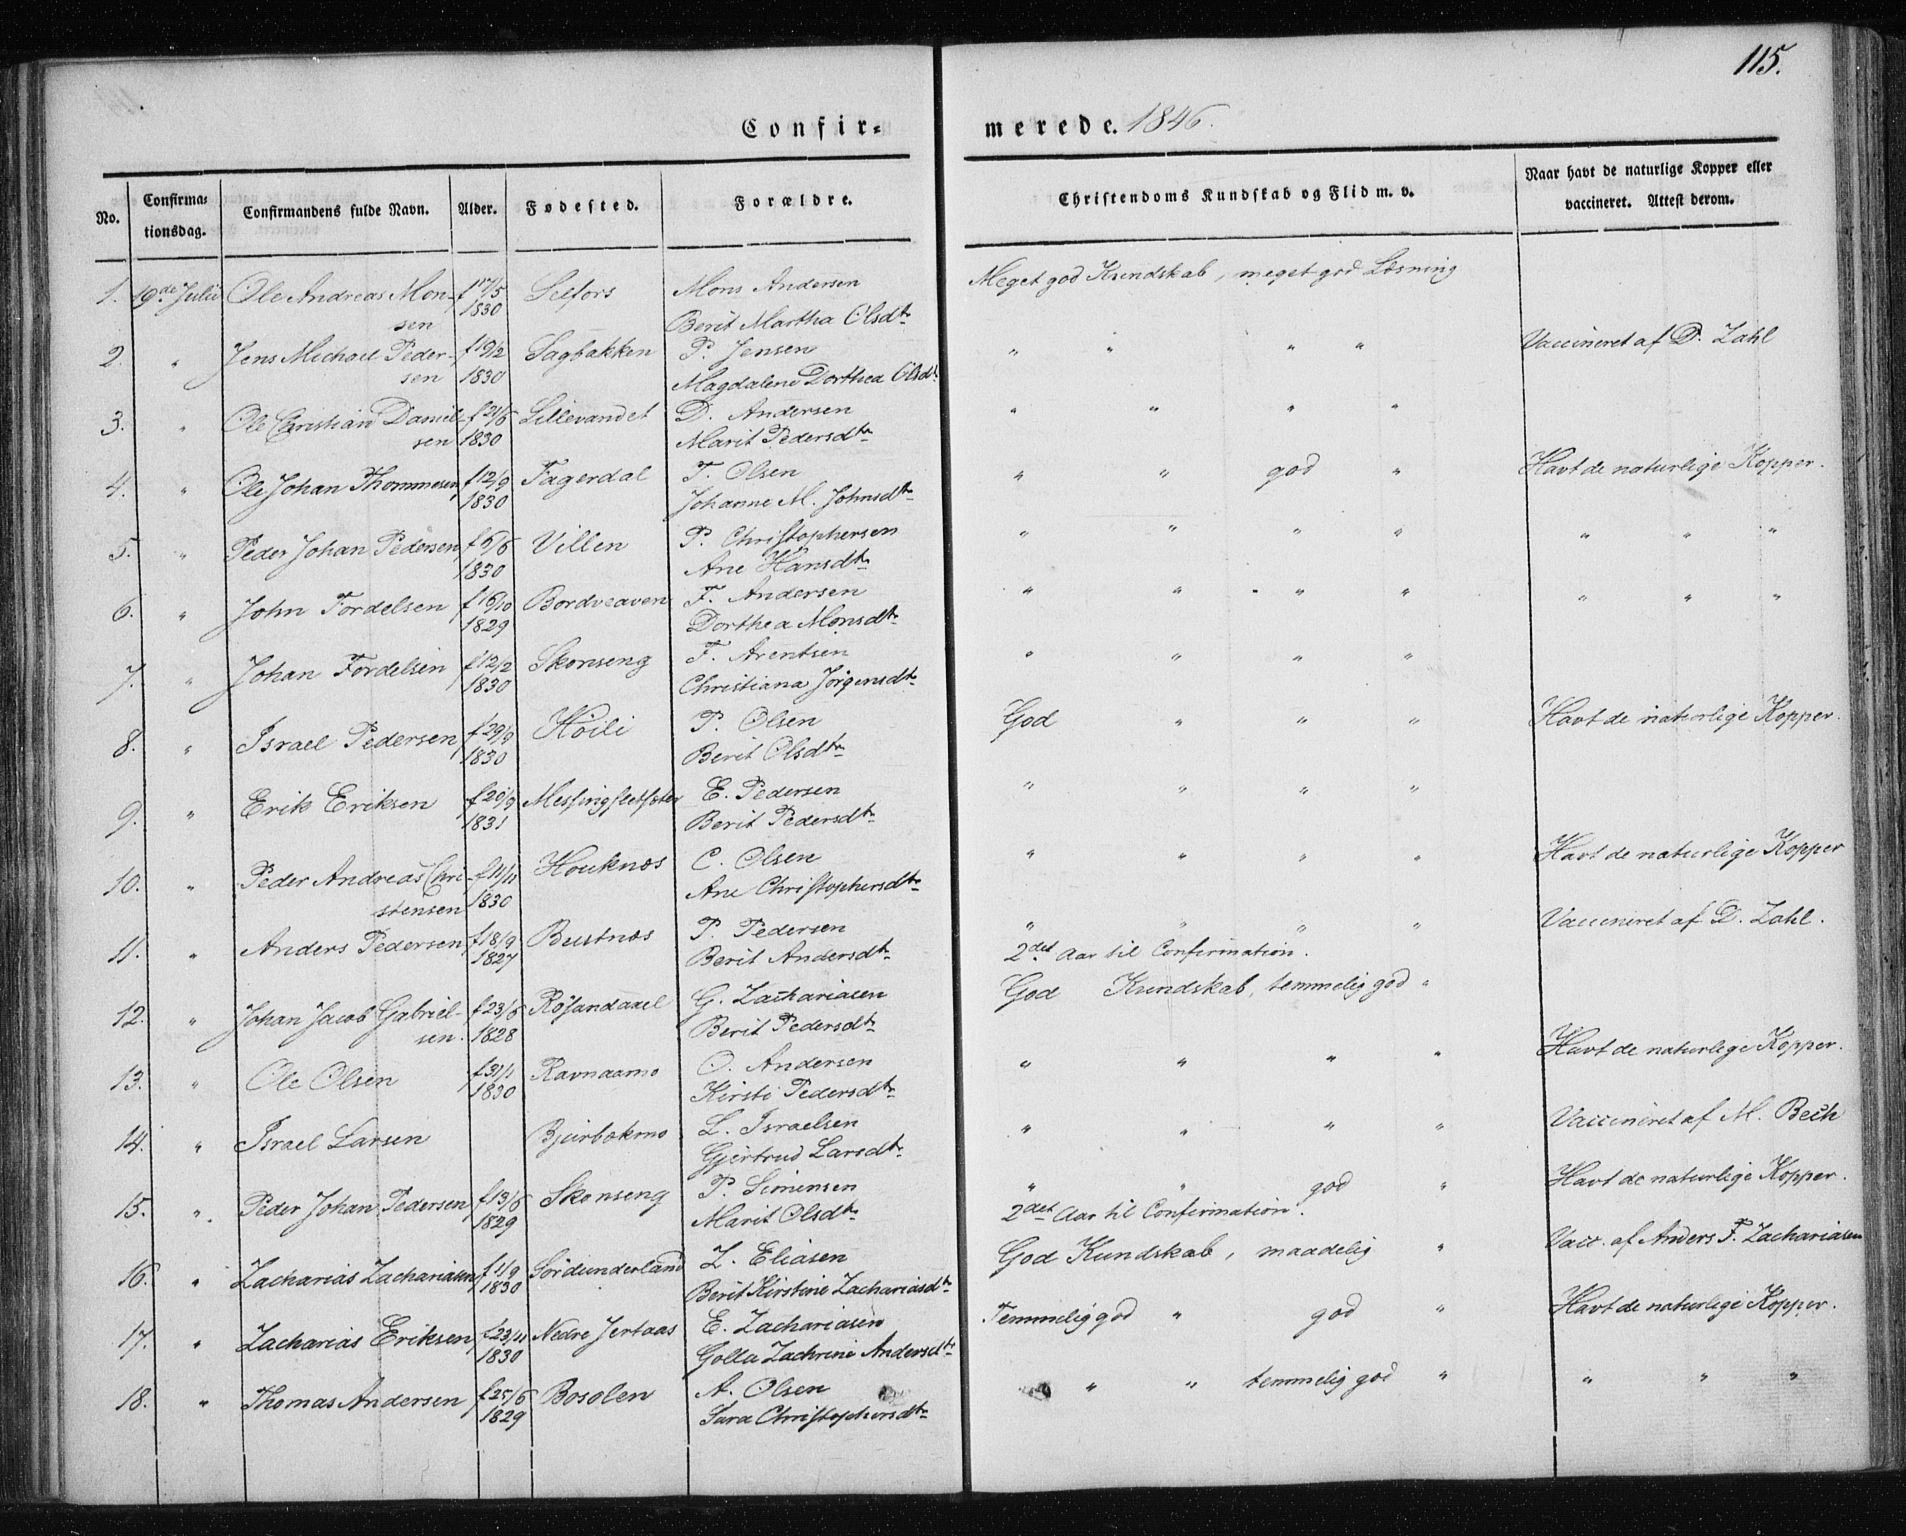 115.
Confir- merede. 1846.
No. Confirma-tionsdag. Confirmandens fulde Navn. Alder. Fødested. Forældre. Christendoms Kundskab og Flid m. v. Naar havt de naturlige Kopper eller vaccineret. Attest derom.
1. 19de Julii Ole Andreas Mon- f 17/5 Selfors Mons Andersen Meget god Kundskab, meget god Læsning
sen 1830 Berit Martha Olsdtr
2. " Jens Michael Peder- f 19/2 Sagbakken P. Jensen " " " " Vaccineret af D. Zahl
sen 1830 Magdalene Dorthea Olsdtr
3. " Ole Christian Daniel- f 21/6 Lillevandet D. Andersen " " " "
sen 1830 Marit Pedersdtr
4. " Ole Johan Thommesen f 12/9 Fagerdal T. Olsen " " god " Havt de naturlige Kopper.
1830 Johanne M. Johnsdtr
5. " Peder Johan Pedersen f 6/6 Villen P. Christophersen " " " " " " "
1830 Ane Hansdtr
6. " John Fordelsen f 16/10 Bordveaven F. Andersen " " " " " " "
1829 Dorthea Monsdtr
7. " Johan Fordelsen f 12/2 Skonseng F. Arentsen " " " "
1830 Christiana Jørgensdtr
8. " Israel Pedersen f 29/9 Høili P. Olsen God " " " Havt de naturlige Kopper.
1830 Berit Olsdtr
9. " Erik Eriksen f 20/9 Messingsletforsen E. Pedersen " " " "
1831 Berit Pedersdtr
10. " Peder Andreas Chri- f 11/11 Houknæs C. Olsen " " " " Havt de naturlige Kopper
stensen 1830 Ane Christophersdtr
11. " Anders Pedersen f 18/9 Bustnæs P. Pedersen " " " " Vaccineret af D. Zahl.
1827 Berit Andersdtr 2det Aar til Confirmation.
12. " Johan Jacob Gabriel- f 23/6 Røsandaael G. Zachariasen God Kundskab, temmelig god "
sen. 1828 Berit Pedersdtr
13. " Ole Olsen f 31/1 Ravnaamo O. Andersen " " " " Havt de naturlige Kopper.
1830 Kirsti Pedersdtr
14. " Israel Larsen Bjurbækmo L. Israelsen " " " " Vaccineret af M. Bech
Gjertrud Larsdtr
15. " Peder Johan Pedersen f 13/6 Skonseng P. Simensen " " god " Havt de naturlige Kopper.
1829 Marit Olsdtr 2det Aar til Confirmation.
16. " Zacharias Zachariasen f 4/9 Sørdunderland Z. Eliasen God Kundskab, maadelig " Vacc. af Anders F. Zachariasen
1830 Berit Kirstine Zachariasdtr
17. " Zacharias Eriksen f 23/11 Nedre Jertaas E. Zachariasen Temmelig god " god " Havt de naturlige Kopper.
1830 Golla Zachrine Andersdtr
18. " Thomas Andersen f 25/6 Bosolen A. Olsen " " temmelig god " " " "
1829 Sara Christophersdtr